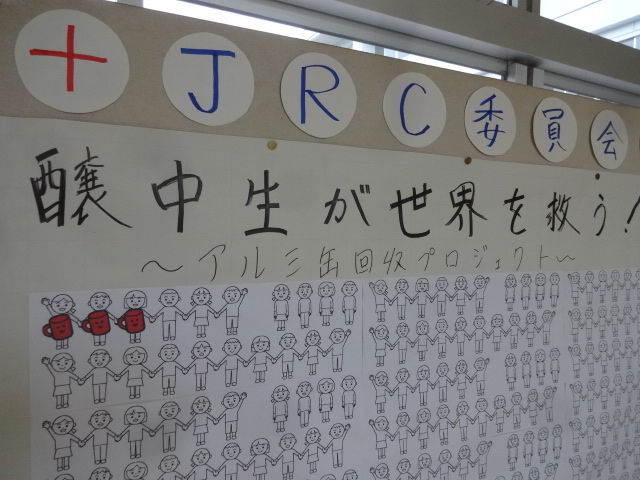 JRC委員会
醸中生が世界を救う!
～アルミ缶回収プロジェクト～